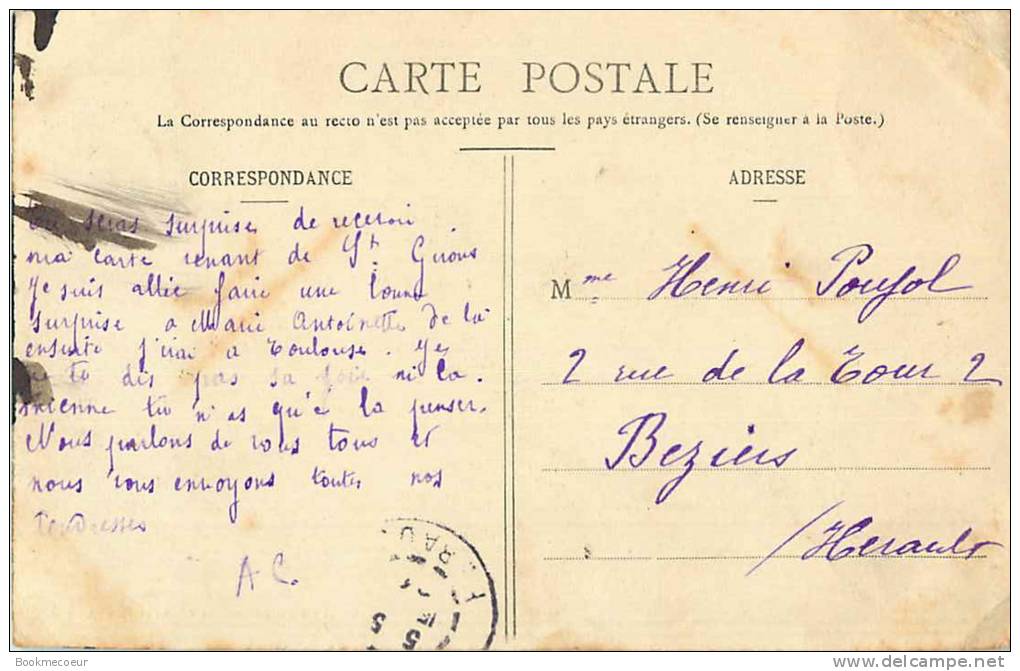 CARTE POSTALE
La Correspondance au recto n'est pas acceptée par tous les pays étrangers. (Se renseigner à la Poste.)
CORRESPONDANCE
Tu seras surprise de recevoir
ma carte venant de St. Girons
Je suis allée faire une bonne
surprise a Marie Antoinette de la
ensuite j'irai a Toulouse. Je
te dis pas sa joie ni la
mienne tu n'as qu'a la penser.
Nous parlons de vous tous et
nous vous envoyons toutes nos
Tendresses
A C.
ADRESSE
Mme Henri Poujol
2 rue de la Tour 2
Beziers
/Herault
RAU
Bookmecoeur
http://www.delcampe.net